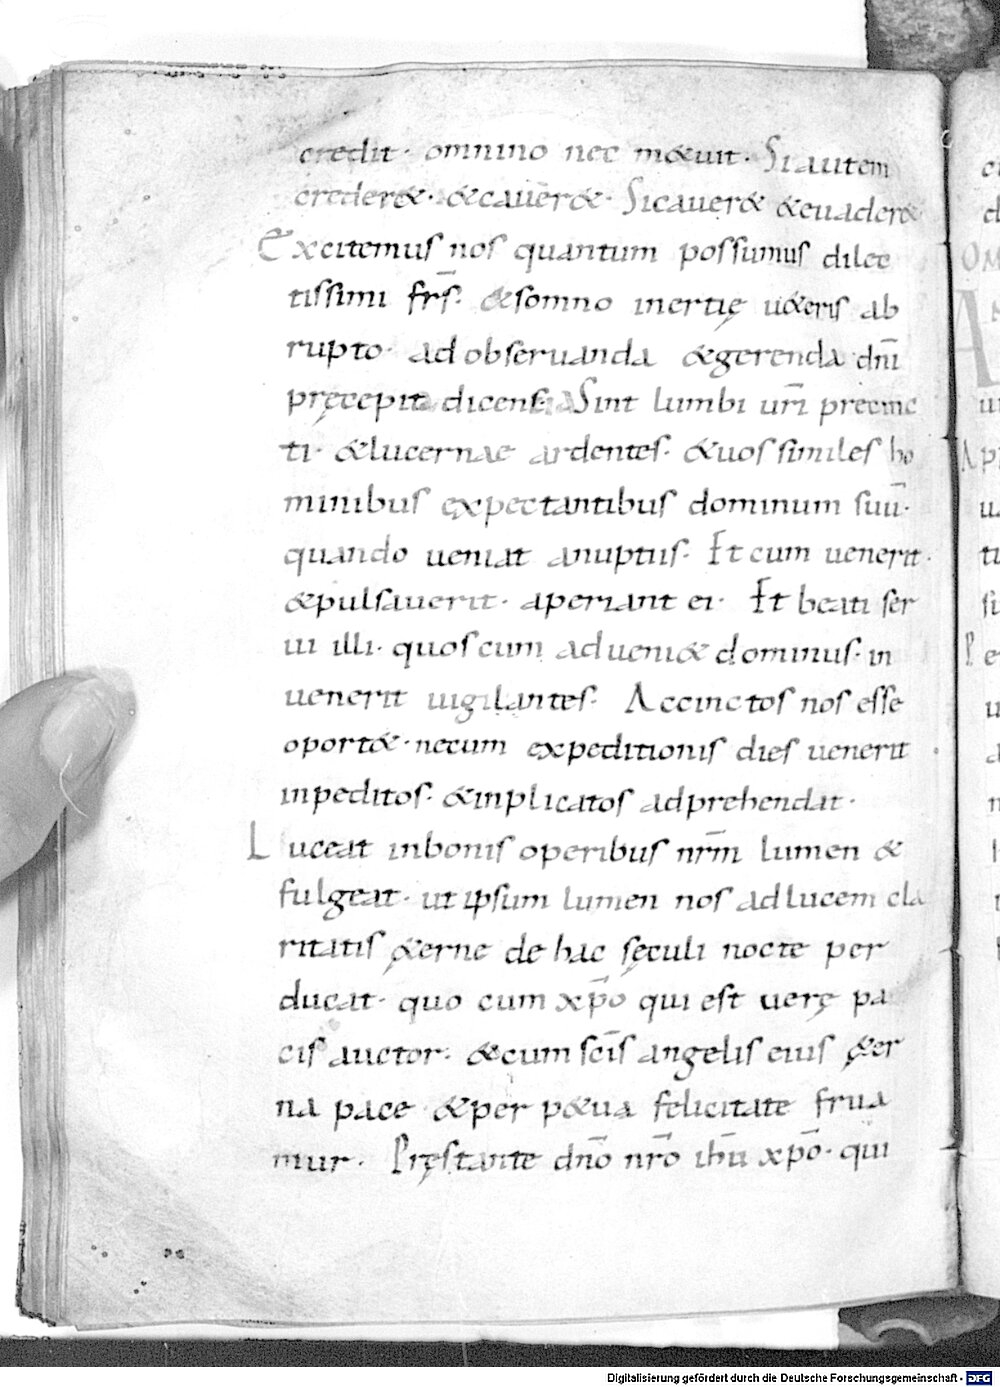 credit· omnino nec m&uit· Si autem
creder&· & cauer&· Si cauer& & euader&
Excitemus nos quantum possumus dilec
tissimi frs̄· & somno inertię u&eris ab
rupto· ad obseruanda & gerenda dn̄i
pręcepit dicens· Sint lumbi ur̄i precinc
ti· & lucernae ardentes· & uos similes ho
minibus expectantibus dominum suū·
quando ueniat a nuptiis· Et cum uenerit·
& pulsauerit· aperiant ei· Et beati ser
ui illi· quos cum adueni& dominus· in
uenerit uigilantes· Accinctos nos esse
oport&· ne cum expeditionis dies uenerit
inpeditos· & inplicatos adprehendat·
Luceat in bonis operibus nr̄m lumen &
fulgeat· ut ipsum lumen nos ad lucem cla
ritatis ę&erne de hac sęculi nocte per
ducat· quo cum xp̄o qui est uerę pa
cis auctor· & cum sc̄is angelis eius ę&er
na pace & perp&ua felicitate frua
mur· Pręstante dn̄o nr̄o ihū xp̄o· qui
Digitalisierung gefördert durch die Deutsche Forschungsgemeinschaft - DFG